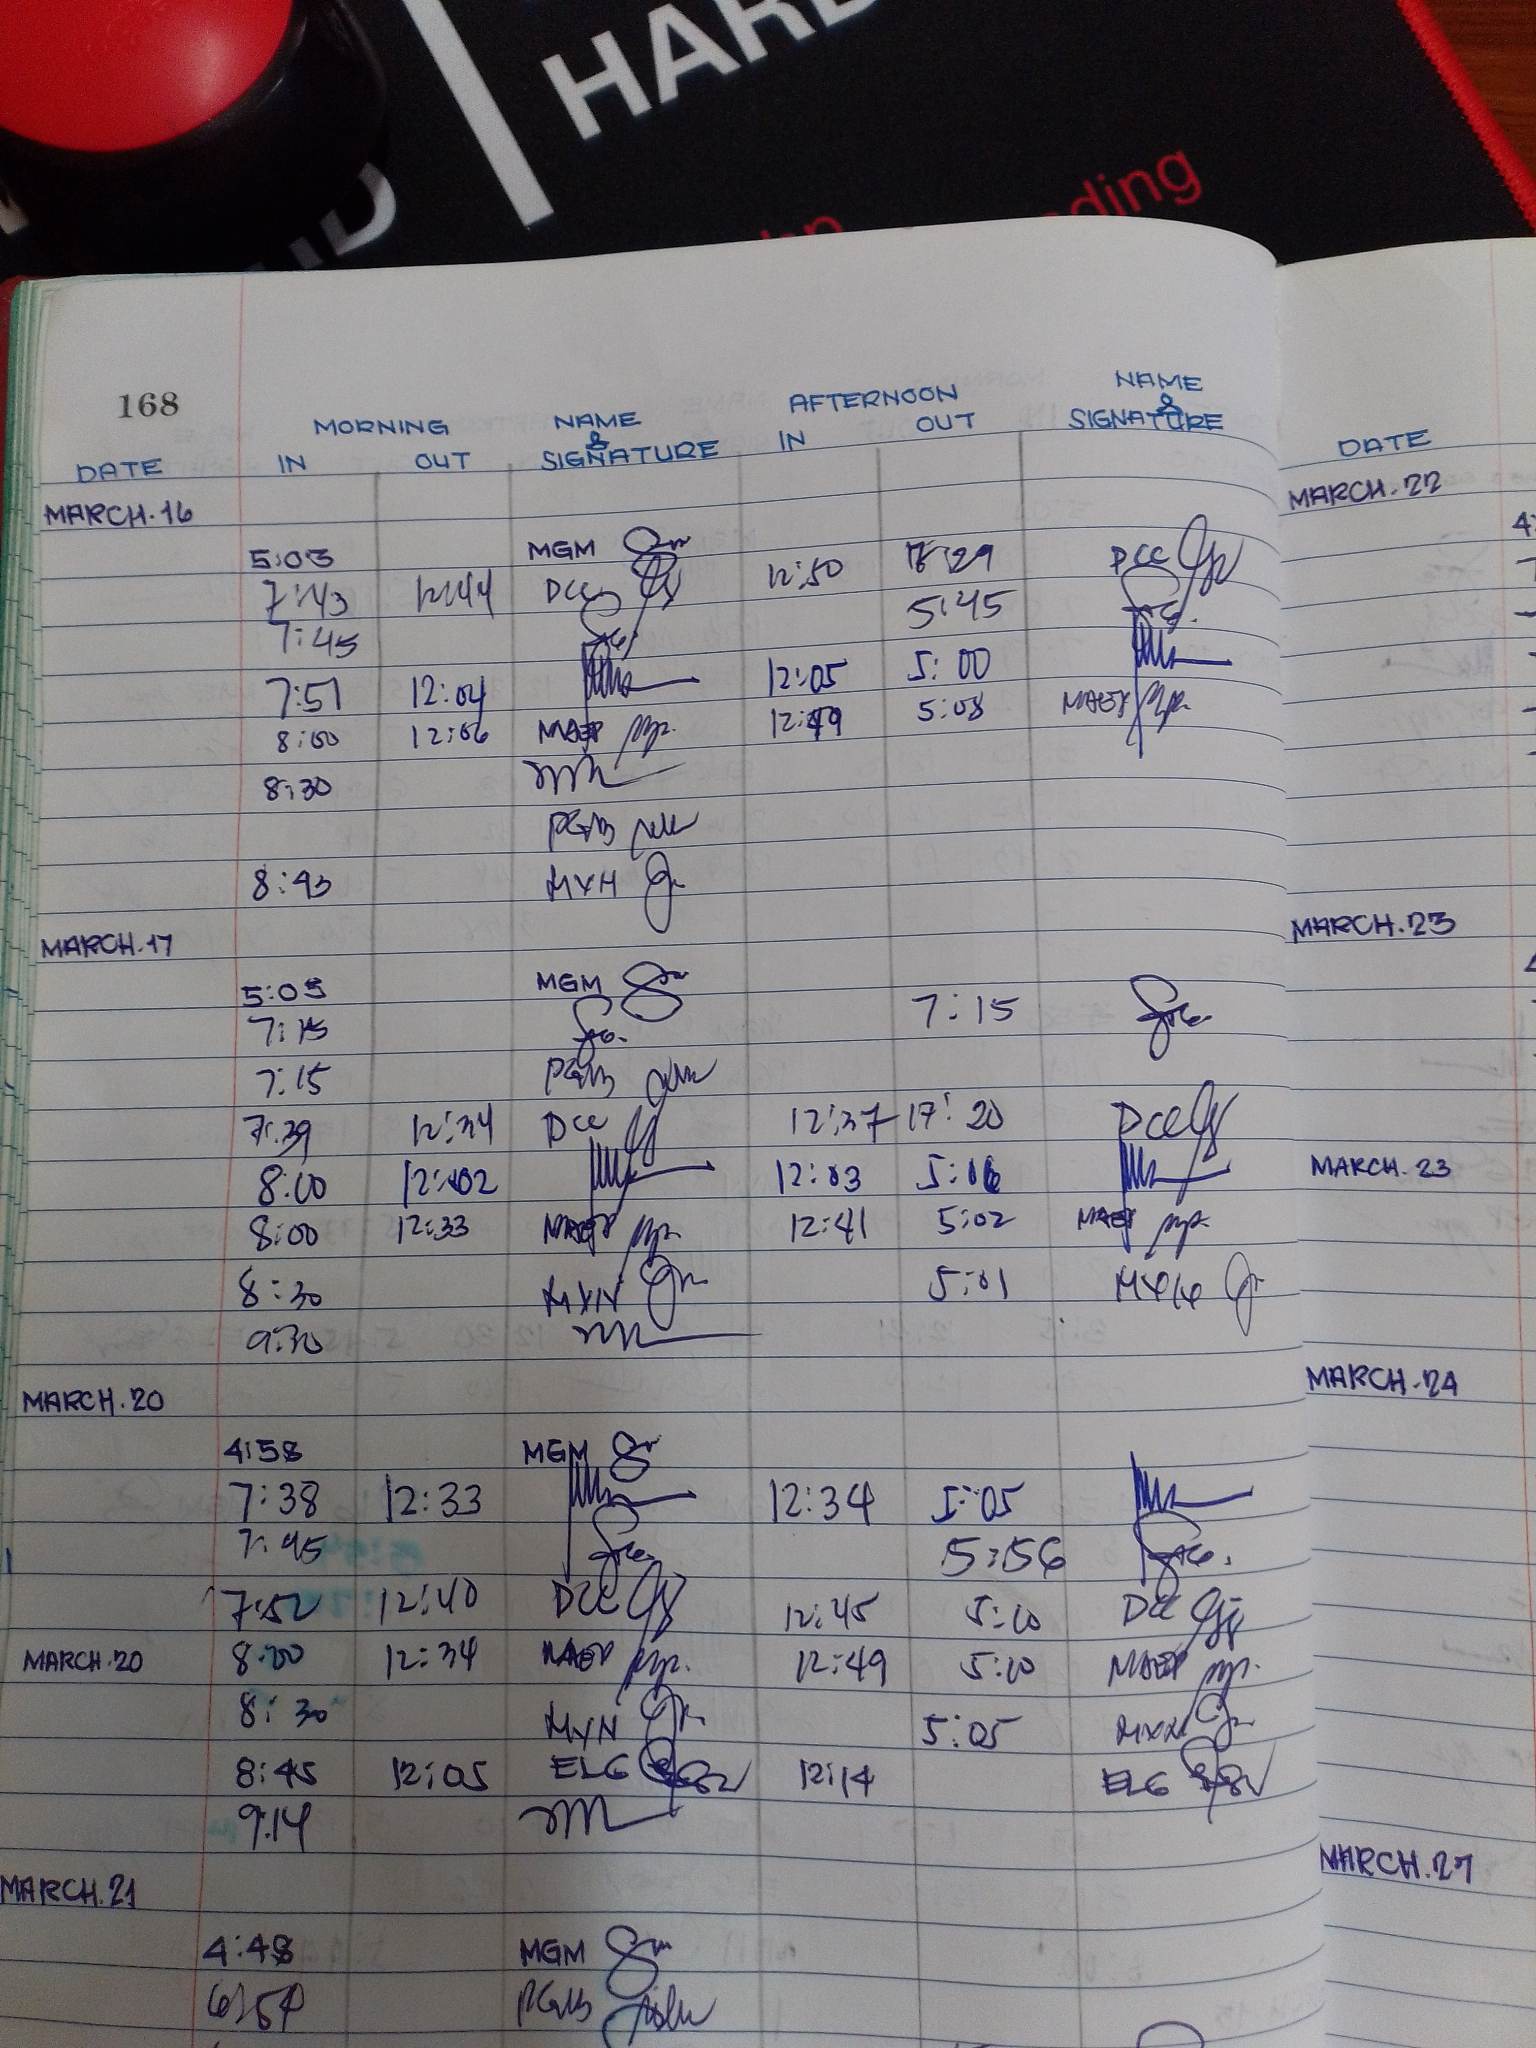 HARD
ding
168
MORNING NAME & SIGNATURE AFTERNOON NAME & SIGNATURE
DATE IN OUT IN OUT DATE
MARCH.16 MARCH.22
5:03 MGM
7:43 12:44 DCC 12:50 DCC
7:45 5:45
7:51 12:04 12:05 5:00
8:00 12:06 MAEP 12:49 5:08 MAEP
8:30
PGMB
8:43 MYN
MARCH.17 MARCH.23
5:05 MGM
7:15 7:15
7:15 PGMB
7:39 12:34 DCC 12:37 17:20 DCC
8:00 12:02 12:03 5:06 MARCH.23
8:00 12:33 MAEP 12:41 5:02 MAEP
8:30 MYN 5:01
9:30
MARCH.20 MARCH.24
4:58 MGM
7:38 12:33 12:34 5:05
7:45 5:56
7:52 12:40 DCC 12:45 5:10 DCC
MARCH.20 8:00 12:34 MAEP 12:49 5:10 MAEP
8:30 MYN 5:05 MYN
8:45 12:05 ELG 12:14 ELG
9:14
MARCH.21 MARCH.27
4:48 MGM
6:54 PGMB